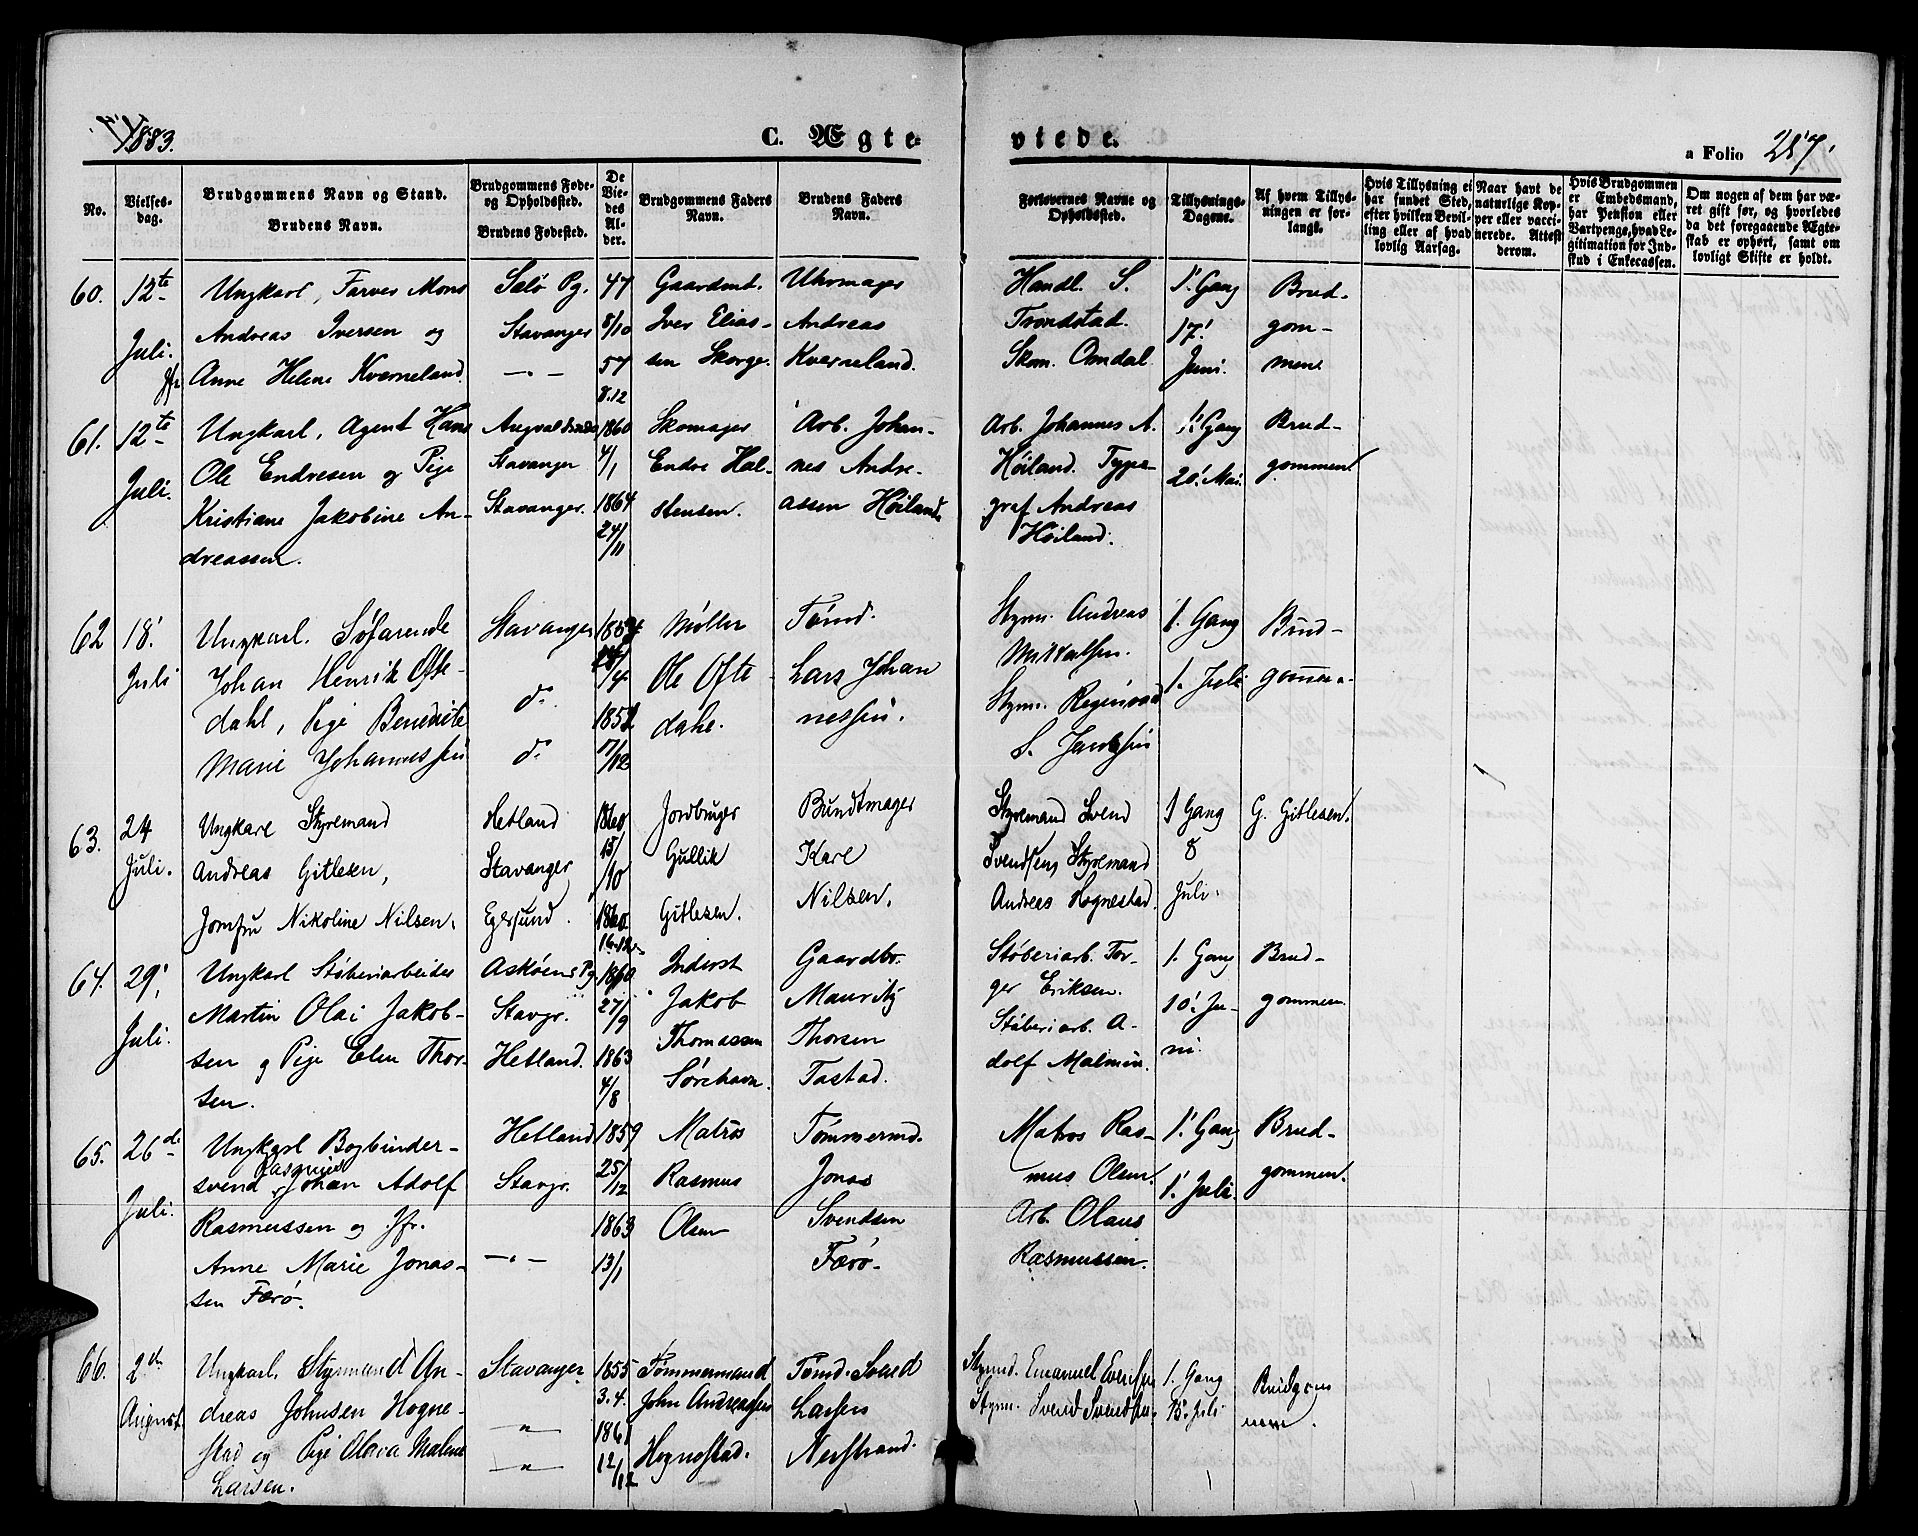 1883.
C. Ægteviede.
a Folio 287.
No.
Vielsesdag.
Brudgommens Navn og Stand.
Brudens Navn.
Brudgommens Føde- og Opholdssted.
Brudens Fødested.
De Viedes Alder.
Brudgommens Faders Navn.
Brudens Faders Navn.
Forlovernes Navne og Opholdssted.
Tillysnings-Dagene.
Af hvem Tillysningen er forlangt.
Hvis Tillysning ei har fundet Sted, efter hvilken Bevilling eller af hvad lovlig Aarsag.
Naar havt de naturlige Kopper eller vaccinerede. Attest derom.
Hvis Brudgommen er Embedsmand, har Pension eller Vartpenge, hvad Legitimation for Indskud i Enkecassen.
Om nogen af dem har været gift før, og hvorledes da det foregaaende Ægteskab er ophørt, samt om lovligt Skifte er holdt.
60.
12te
Juli.
Ungkarl, Farver Mons
Andreas Iversen og
Jfr Anne Helene Kverneland.
Selø Pg.
Stavanger
—"—
47
8/10
57
8.12
Gaardmt.
Iver Elias-
sen Skorge.
Uhrmager
Andreas
Kverneland.
Handl. S.
Trondstad.
Skom. Omdal.
1' Gang
17'
Juni.
Brud-
gom-
men.
61.
12te
Juli.
Ungkarl, Agent Hans
Ole Endresen og Pige
Kristiane Jakobine An-
dreassen.
Stavanger
Stavanger.
1860
4/1
1864
24/11
Skomager
Endre Hal-
stensen.
Arb. Johan-
nes Andre-
assen Høiland.
Arb. Johannes A.
Høiland. Typo-
graf Andreas
Høiland.
1' Gang
20' Mai.
Brud-
gommen.
62
18'
Juli
Ungkarl. Søfarende
Johan Henrik Ofte-
dahl, Pige Benedicte
Marie Johannessen
Stavanger
do
do
/4
1852
17/12
Møller
Ole Ofte-
dahl.
Tømd.
Lars Johan
nessen.
Styrm. Andreas
Mikalsen.
Styrm.
S. Jacobsen
1. Gang
1. Juli
Brud-
gommen.
63.
24
Juli.
Ungkarl Styremand
Andreas Gitlesen,
Jomfru Nikoline Nilsen.
Hetland
Stavanger
Egersund.
1860
15/10
1860
16.12.
Jordbruger
Gullik
Gitlesen.
Bundtmager
Karl
Nilsen.
Styremand Svend
Svendsen, Styremand
Andreas Hognestad.
1 Gang
8
Juli.
G. Gitlesen.
64.
29'
Juli.
Ungkarl Støberiarbeider
Martin Olai Jakob-
sen og Pige Elen Thor-
sen.
Askøens Pg.
Stavgr.
Hetland.
1860
27/9
1863
4/8
Inderst
Jakob
Thomassen
Sørehavn.
Gaardbr.
Mauritz
Thorsen
Tastad.
Støberiarb. Tor-
ger Eriksen.
Støberiarb. A-
dolf Malmin.
1. Gang
10' Ju-
ni.
Brud-
gommen.
65.
26de
Juli.
Ungkarl Bogbinder-
svend Rasmus Johan Adolf
Rasmussen og Jfr.
Anne Marie Jonas-
sen Færø.
Hetland
Stavgr.
—"—
1859
25/12
1863
13/1
Matros
Rasmus
Olsen
Tømmermd.
Jonas
Svendsen
Færø.
Matros Ras-
mus Olsen.
Arb. Olaus
Rasmussen.
1' Gang
1' Juli.
Brud-
gommen.
66.
2de
August.
Ungkarl, Styrmand An-
dreas Johnsen Hogne-
stad og Pige Olava Malene
Larsen.
Stavanger
—"—
—"—
1855
3.4.
1861
12/12
Tømmermand
John Andreassen
Hognestad.
Tømd. Svend
Larsen
Nerstrand.
Styrmd. Emanuel Evensen
Styrm. Svend Svendsen.
1. Gang
15' Juli
Brudgom
men.